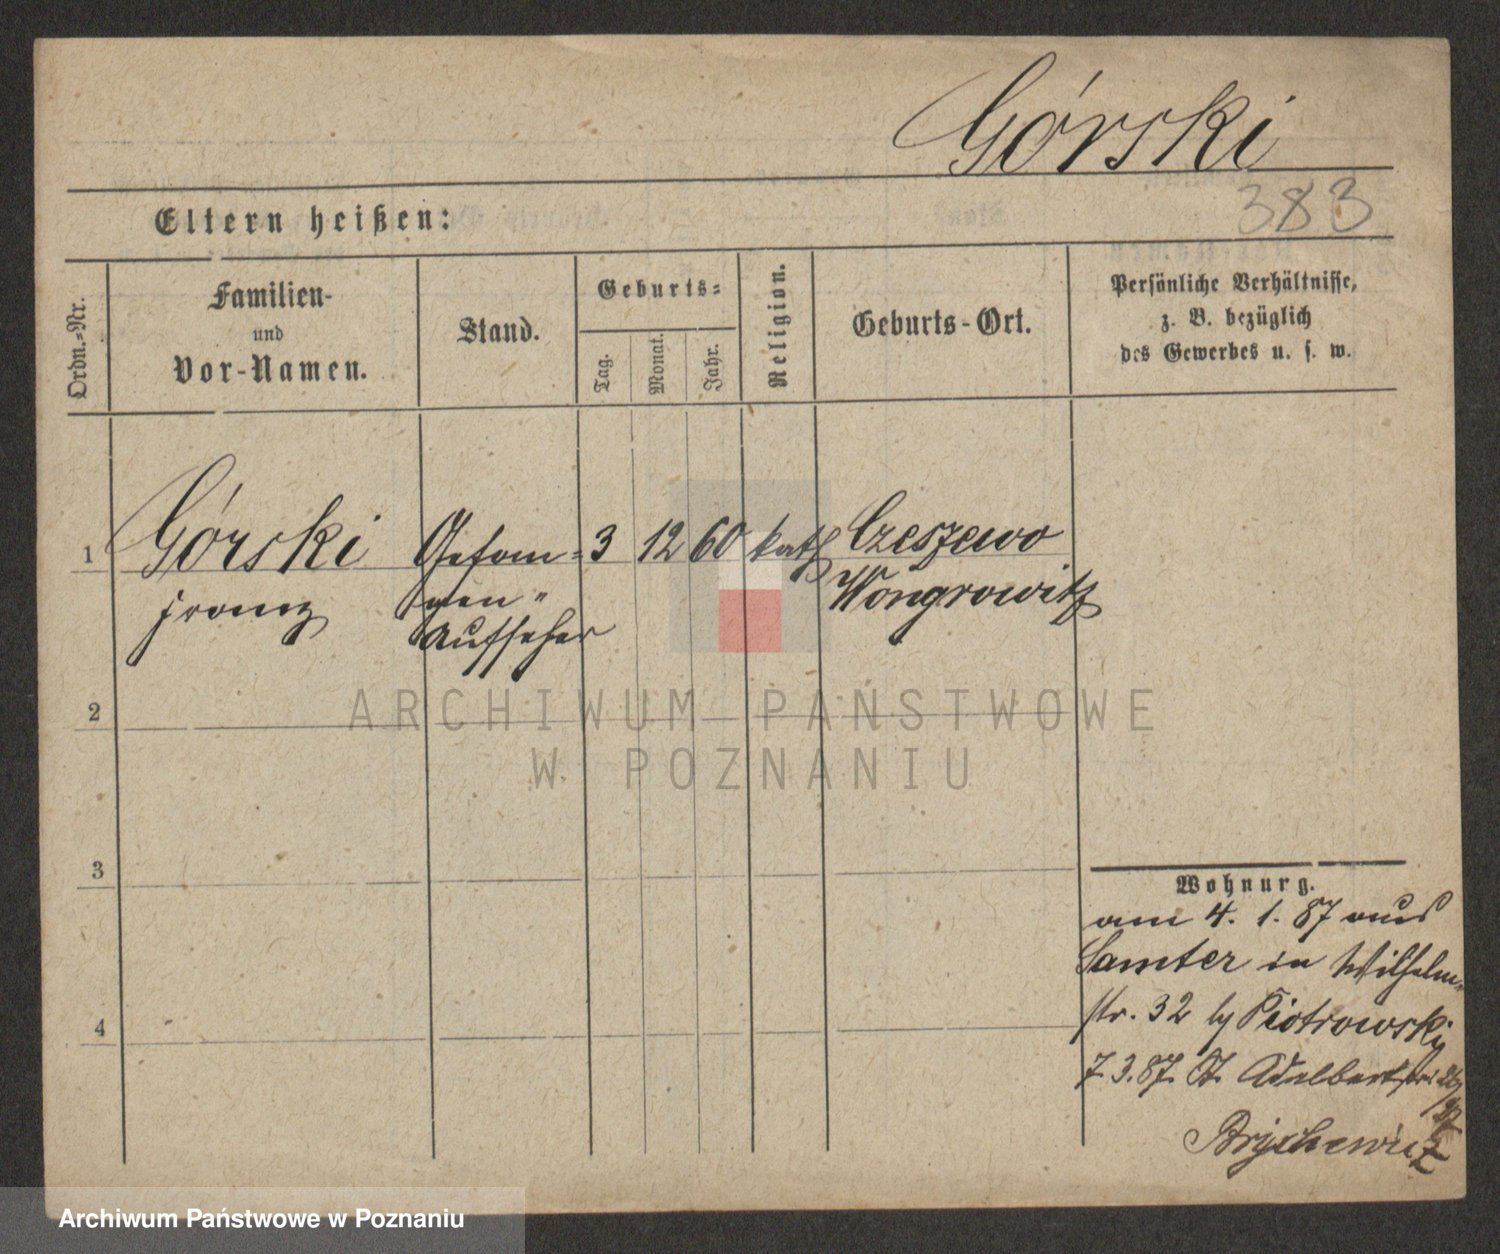 Górski
383
Eltern heißen:
Ordn.-Nr.
Familien-
und
Vor-Namen.
Stand.
Geburts-
Tag.
Monat.
Jahr.
Religion.
Geburts-Ort.
Persönliche Verhältnisse,
z. B. bezüglich
des Gewerbes u. s. w.
1 Górski Gefan= 3 12 60 kath Czeszewo
Franz gen" Wongrowitz
Aufseher
2
ARCHIWUM PAŃSTWOWE
W POZNANIU
3
Wohnung.
am 4. 1. 87 aus
Samter in Wilhelm-
str. 32 by Piotrowski
4
7. 3. 87. St. Adalbert
Archiwum Państwowe w Poznaniu